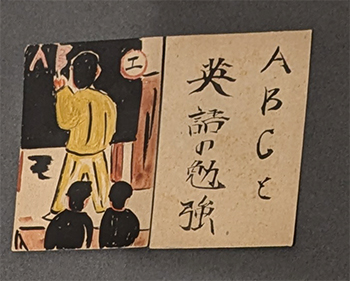 AB
エ
ABCと
英語の勉強